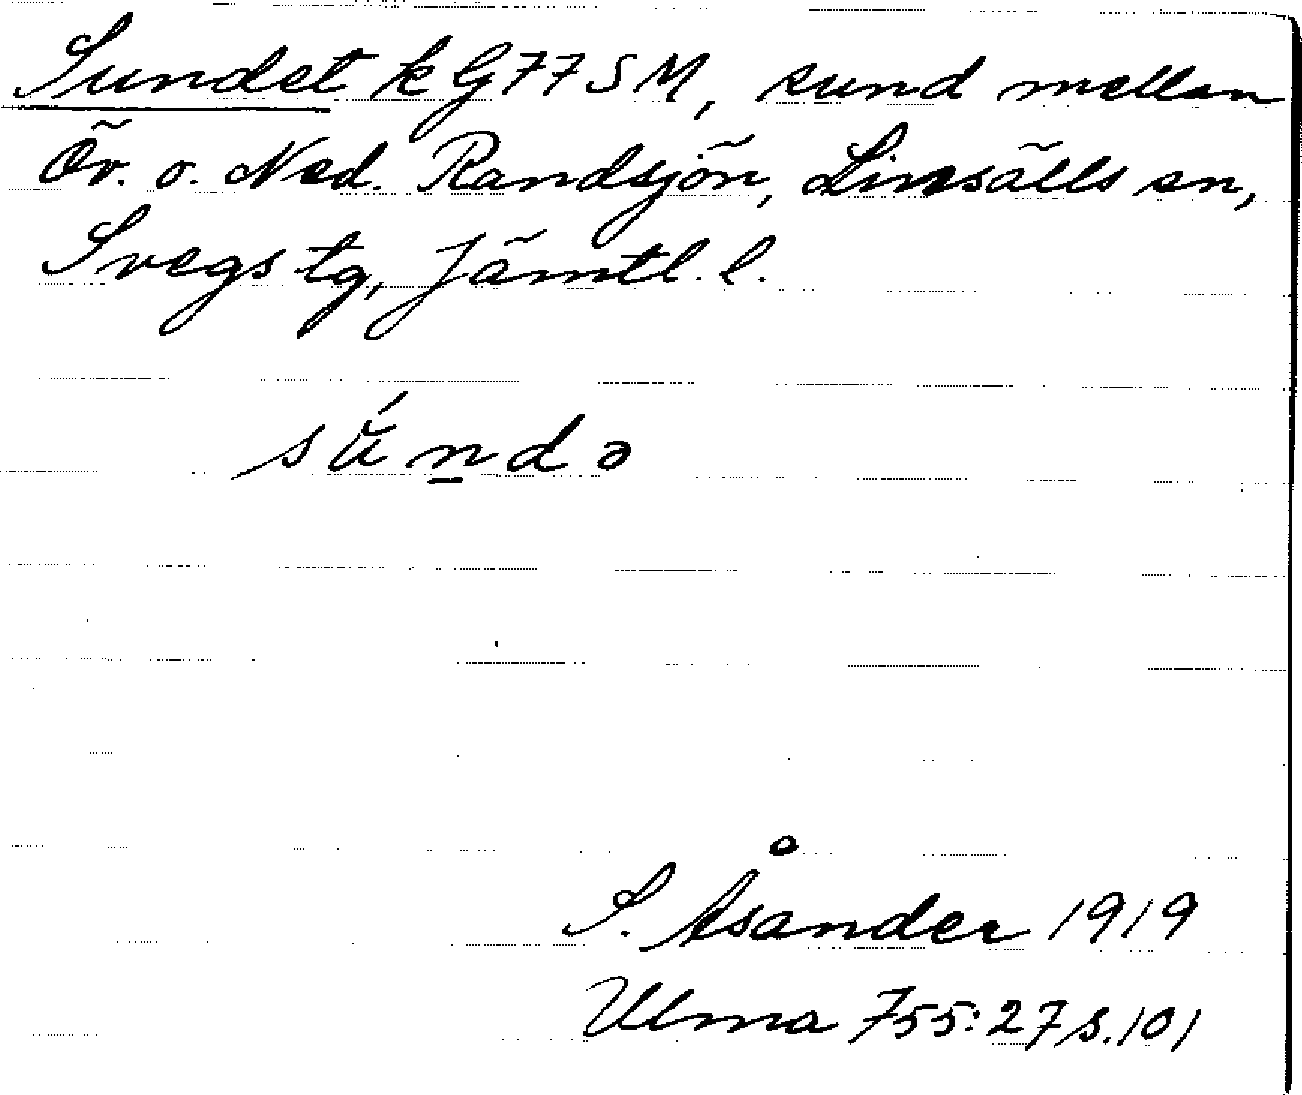 Sundet k G77SM, sund mellan
Öv. o. Ned. Randsjön, Linsälls sn,
Svegs tg, Jämtl. l.
sú̆n̲də
S. Åsander 1919
Ulma 755:27 s. 101